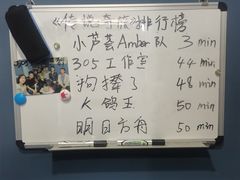 《传说夺旗》排行榜
小芦荟Amber队 3 min
305工作室 44 min
狗撵了 48 min
K鸽王 50 min
明日方舟 50 min